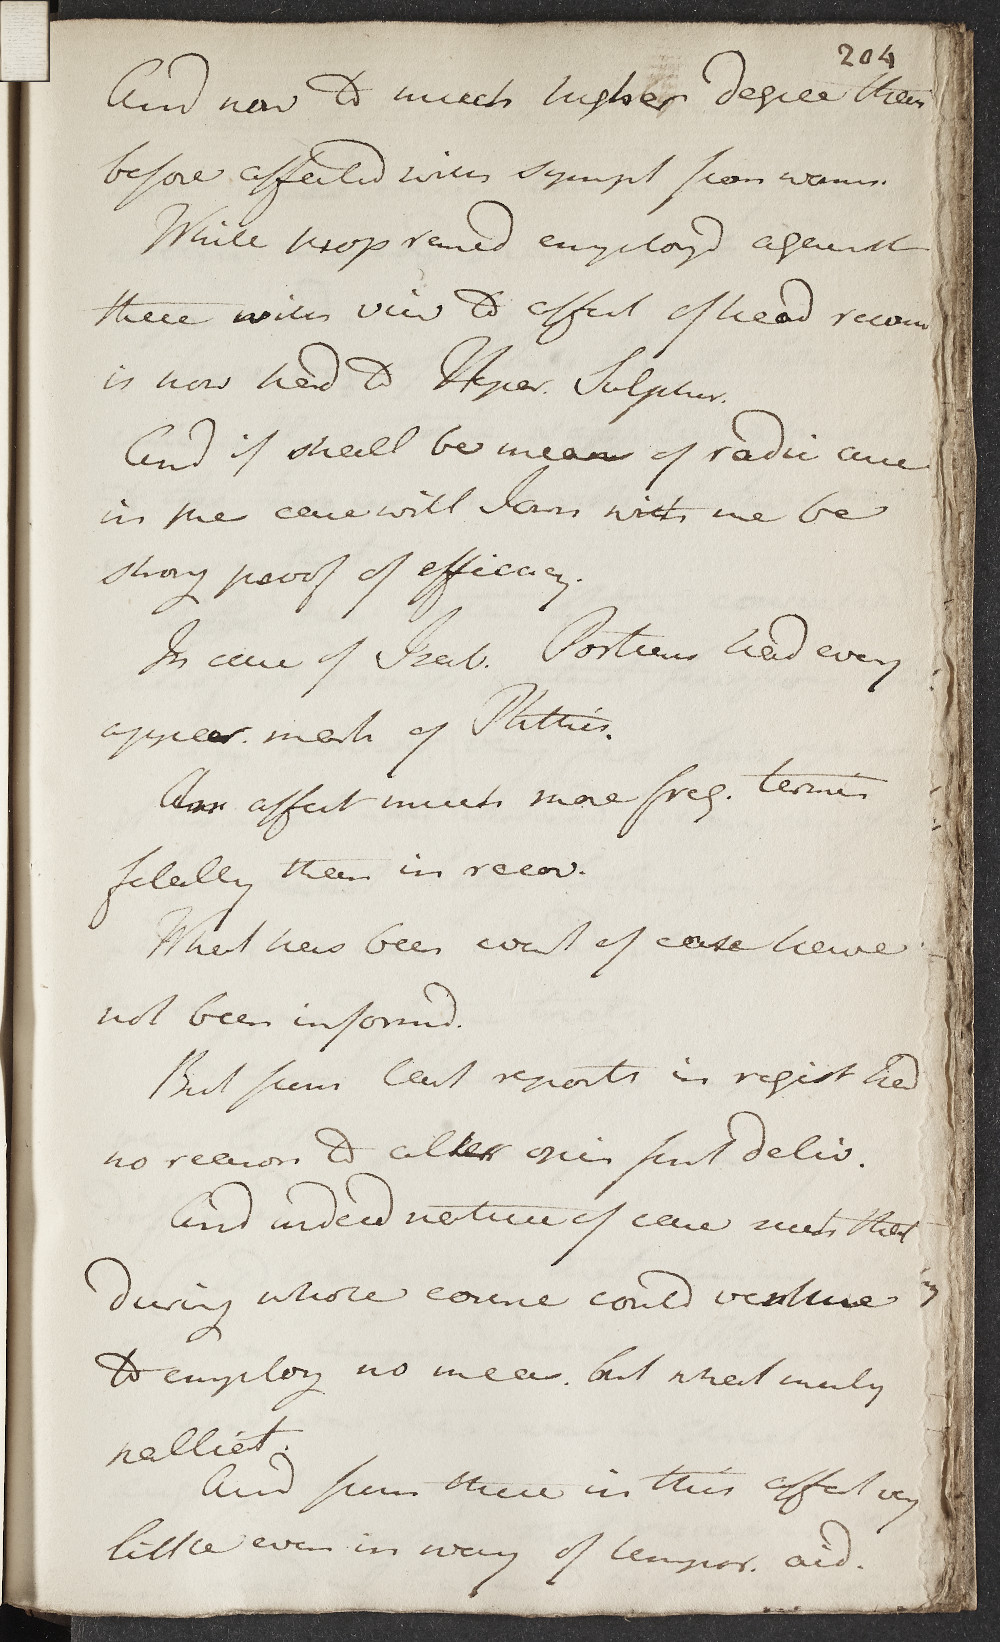 204
And now to much higher degree than
before affected with sympt from worms.
While prop remed employd against
these with view to affect of head recour
is now had to Hepar. Sulphur.
And if shall be mean of radic cure
in pres case will I own with me be
strong proof of efficacy.
In case of Isab. Porteus had every
appear. mark of Phthis.
An affect much more freq. termin
fatally than in recov.
What has been event of case have
not been informd.
But from last reports in regist had
no reason to alter opin first deliv.
And indeed nature of case such that
during whole course could venture
to employ no mea. but what merly
palliat.
And from these in this affect very
little even in way of tempor. aid.